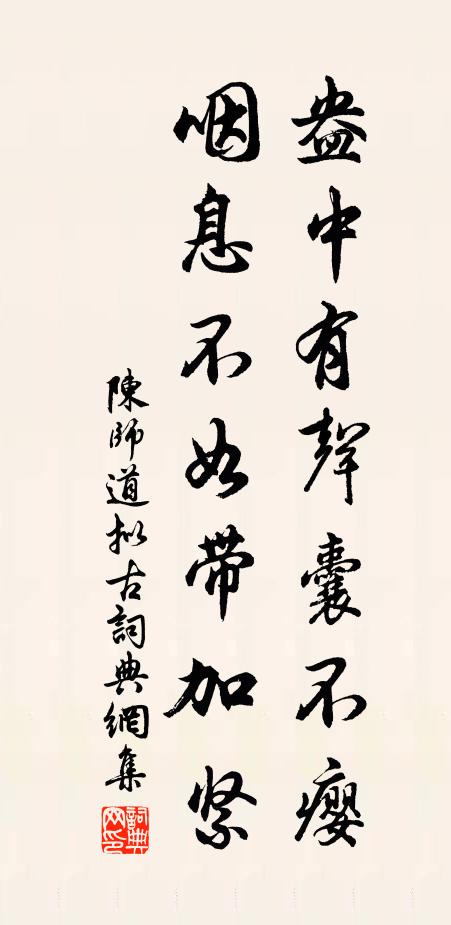 盎中有聲囊不瘿
咽息不如帶加紧
陳師道拟古詞典網集
詞典網印